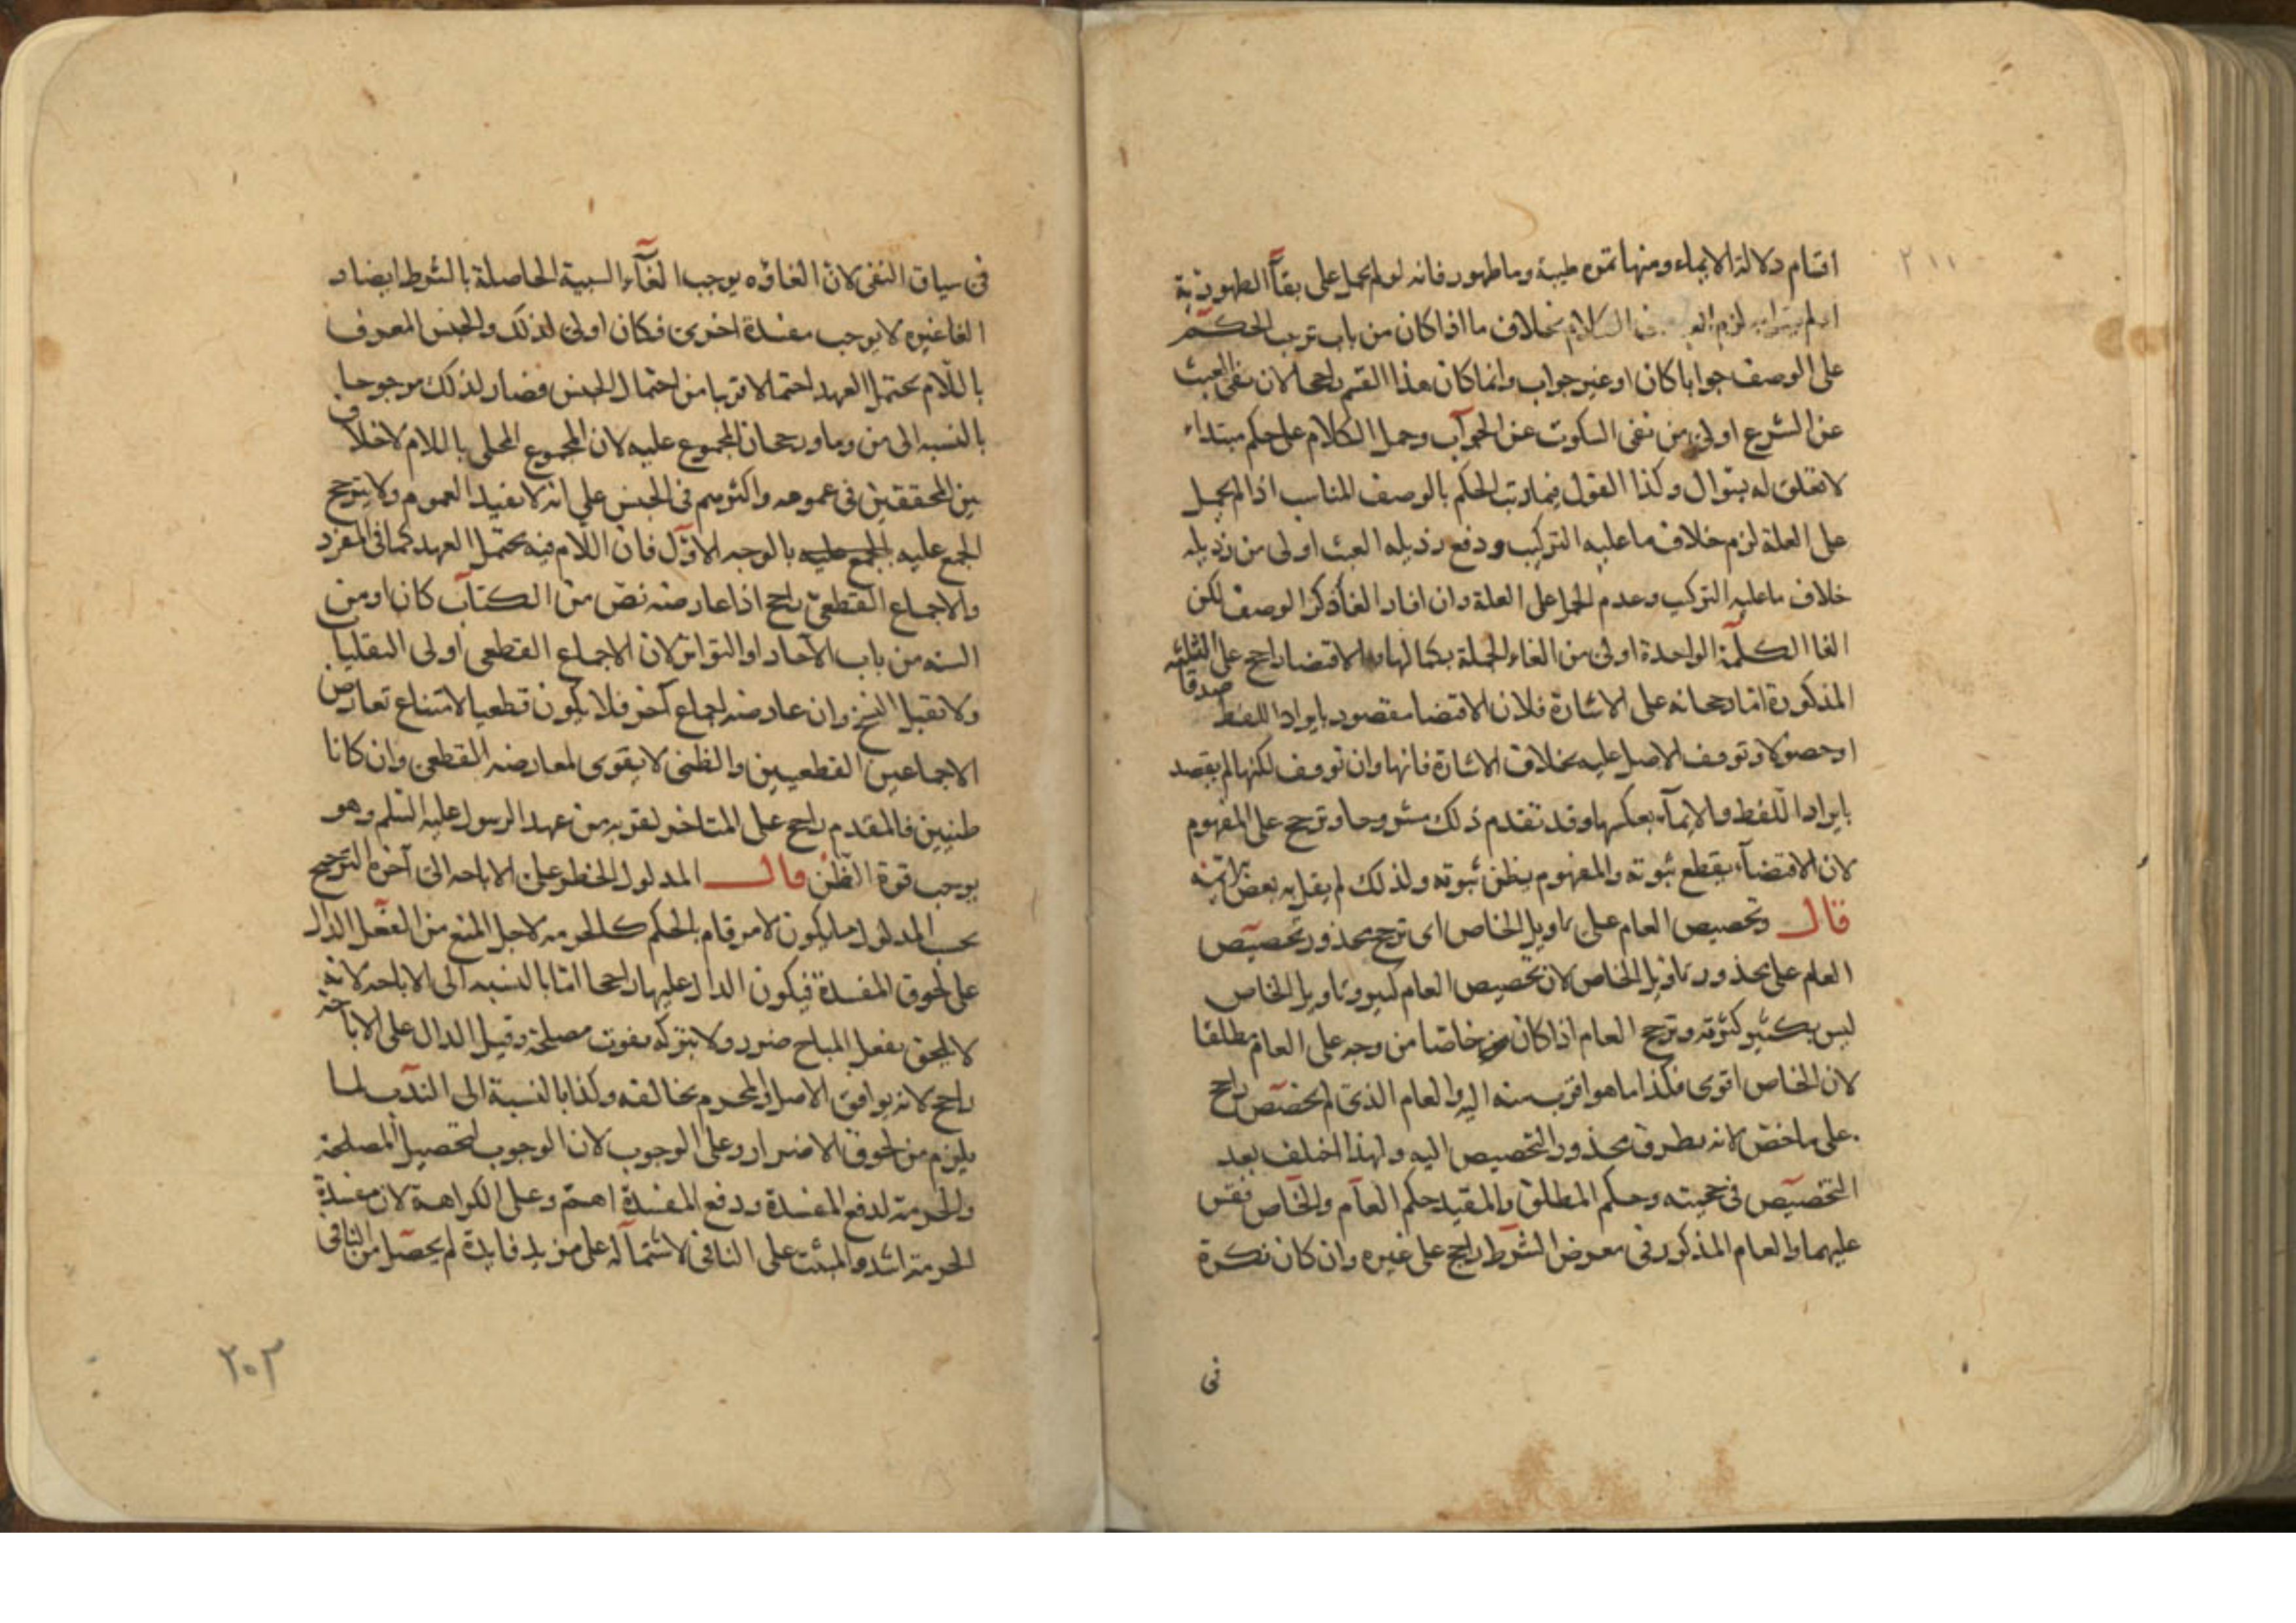 ٢١١
اقسام دلالة الايماء ومنها تمره طيبة وماطهور فانه لو لم يحمل على بقآ الطهورية
لزم السلام بخلاف ما اذا كان من باب ترتب الحكم
على الوصف جوابا كان او غير جواب وانما كان هذا القسم راجحا لان نفى العبث
عن الشرع اولى من نفى السكوت عن الجوآب وحمل الكلام على حكم مبتداء
لا تعلق له بسوال وكذا القول فيما رتب الحكم بالوصف المناسب اذا لم يحمل
على العلة لزم خلاف ما عليه التركيب ودفع رذيله العبث اولى من رذيله
خلاف ما عليه التركيب وعدم الحمل على العلة وان افاد الغآ ذكر الوصف لكن
الغا الكلمة الواحدة اولى من الغاء الجملة بكمالها والاقتضا راجح على الثلثه
المذكورة اما رجحانه على الاشارة فلان الاقتضا مقصود بايراد اللفظ صدقا
او حصولا وتوقف الاصل عليه بخلاف الاشارة فانها وان توقف لكنها لم يقصد
بايراد اللفظ والايمآء بعكسها وقد تقدم ذلك مشروحا وترجح على المفهوم
لان الاقتضآء يقطع ثبوته والمفهوم يظن ثبوته ولذلك لم يقل به بعض الائمه
قال وتخصيص العام على تاويل الخاص اى ترجح محذور تخصيص
العام على محذور تاويل الخاص لان تخصيص العام كثير وتاويل الخاص
ليس بكثير كثرته وترجح العام اذا كان خاصا من وجه على العام مطلقا
لان الخاص اقوى فكذا ما هو اقرب منه اليه والعام الذى لم يخصص راجح
على ما خص لانه تطرق محذور التخصيص اليه ولهذا اختلف بعد
التخصيص فى حجيته وحكم المطلق والمقيد حكم العآم والخآص فقس
عليهما والعام المذكور فى معرض الشرط راجح على غيره وان كان نكرة
فى
فى سياق النفى لان الغاؤه يوجب الغآء السببية الحاصلة بالشرط ايضا و
الغا غيره لا يوجب مفسدة اخرى فكان اولى لذلك والجنس المعرف
باللام يحتمل العهد احتمالا قريبا من احتمال الجنس فصار لذلك مرجوحا
بالنسبه الى من وما ورجحان المجموع عليه لان المجموع المحلى باللام لاخلاف
بين المحققين فى عمومه واكثرهم فى الجنس على انه لا يفيد العموم ولا يترجح
الجمع عليه بالوجه الاول فان اللام فيه يحتمل العهد كما فى المفرد
والاجماع القطعى راجح اذا عارضه نص من الكتاب كان او من
السنه من باب الآحاد او التواتر لان الاجماع القطعى اولى النقليا
ولا تقبل النسخ وان عارضه اجماع آخر فلا يكون قطعيا لامتناع تعارض
الاجماعين القطعيين والظنى لا يقوى لمعارضه القطعى وان كانا
ظنيين فالمقدم راجح على المتاخر لقربه من عهد الرسول عليه السلم وهو
يوجب قوة الظن قال المدلول الحظر على الاباحه الى آخره الترجيح
بحسب المدلول ما يكون لامر قام بالحكم كالحرمه لاجل المنع من الفعل الدال
على لحوق المفسدة فيكون الدال عليها راجحا اما بالنسبه الى الاباحه لانه
لا يلحق بفعل المباح ضرر ولا بتركه بفوت مصلحة وقيل الدال على الاباحه
راجح لانه يوافق الاصل والمحرم يخالفه وكذا بالنسبة الى الندب لما
يلزم من لحوق الاضرار وعلى الوجوب لان الوجوب لتحصيل المصلحه
والحرمة لدفع المفسدة ودفع المفسدة اهم وعلى الكراهة لان مفسدة
الحرمة اشد والمثبت على النافى لاشتماله على مزيد فايدة لم يحصل من النافى
٢٠٣